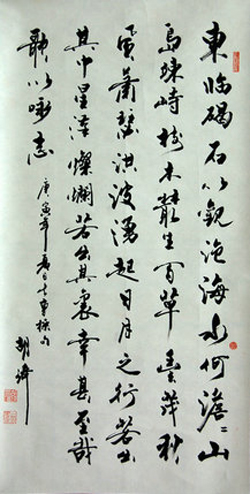 東臨碣石以觀滄海水何澹〻山
島竦峙樹木叢生百草豐茂秋
風蕭瑟洪波湧起日月之行若出
其中星漢燦爛若出其裏幸甚至哉
歌以詠志
庚寅年夏日